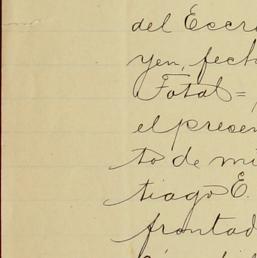 del Escr
yen, fech
Total=
el presen
to de mi
tiago E.
frontad